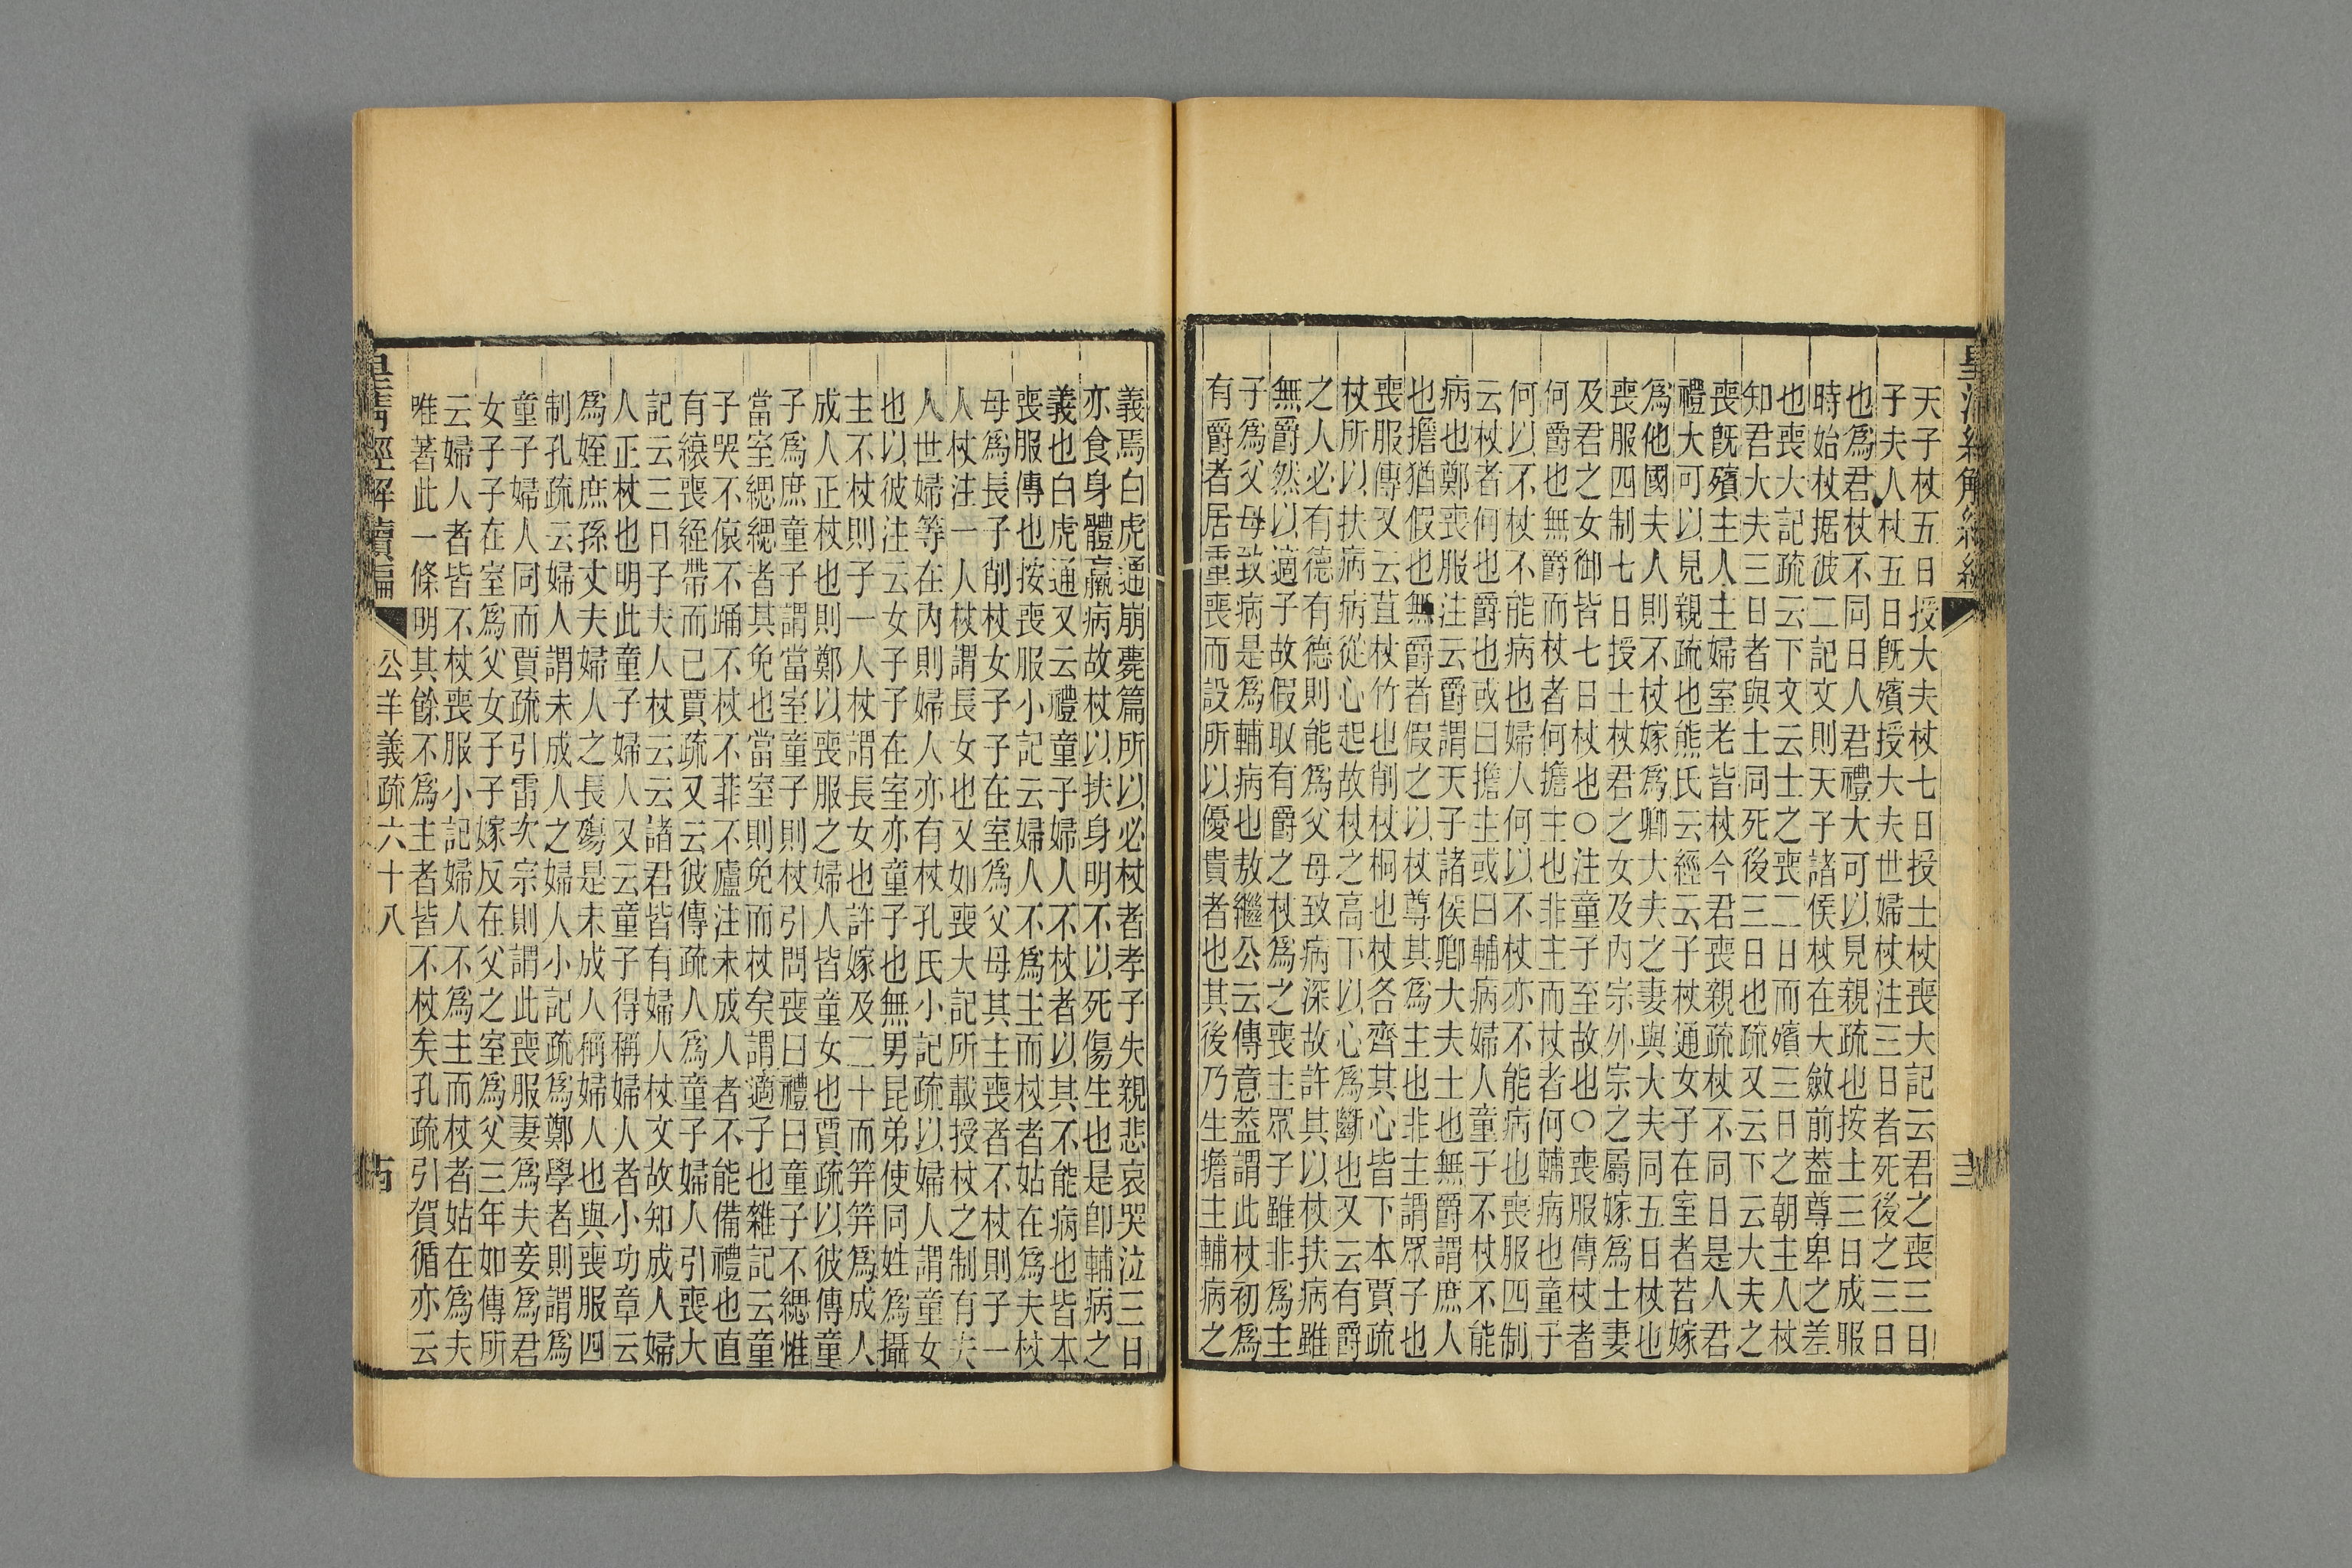 皇清經解續編
三
天子杖五日授大夫杖七日授士杖喪大記云君之喪三日
子夫人杖五日旣殯授大夫世婦杖注三日者死後之三日
也爲君杖不同日人君禮大可以見親疏也按士三日成服
時始杖据彼二記文則天子諸侯杖在大斂前葢尊卑之差
也喪大記疏云下文云士之喪二日而殯三日之朝主人杖
知君大夫三日者與士同死後三日也疏又云下云大夫之
喪旣殯主人主婦室老皆杖今君喪親疏杖不同日是人君
禮大可以見親疏也熊氏云經云子杖通女子在室者若嫁
爲他國夫人則不杖嫁爲卿大夫之妻與大夫同五日杖也
喪服四制七日授士杖君之女及內宗外宗之屬嫁爲士妻
及君之女御皆七日杖也○注童子至故也○喪服傳杖者
何爵也無爵而杖者何擔主也非主而杖者何輔病也童子
何以不杖不能病也婦人何以不杖亦不能病也喪服四制
云杖者何也爵也或曰擔主或曰輔病婦人童子不杖不能
病也鄭喪服注云爵謂天子諸侯卿大夫士也無爵謂庶人
也擔猶假也無爵者假之以杖尊其爲主也非主謂眾子也
喪服傳又云苴杖竹也削杖桐也杖各齊其心皆下本賈疏
杖所以扶病病從心起故杖之高下以心爲斷也又云有爵
之人必有德有德則能爲父母致病深故許其以杖扶病雖
無爵然以適子故假取有爵之杖爲之喪主眾子雖非爲主
子爲父母致病是爲輔病也敖繼公云傳意葢謂此杖初爲
有爵者居重喪而設所以優貴者也其後乃生擔主輔病之
義焉白虎通崩薨篇所以必杖者孝子失親悲哀哭泣三日
亦食身體羸病故杖以扶身明不以死傷生也是卽輔病之
義也白虎通又云禮童子婦人不杖者以其不能病也皆本
喪服傳也按喪服小記云婦人不爲主而杖者姑在爲夫杖
母爲長子削杖女子子在室爲父母其主喪者不杖則子一
人杖注一人杖謂長女也又如喪大記所載授杖之制有夫
人世婦等在內則婦人亦有杖孔氏小記疏以婦人謂童女
也以彼注云女子子在室亦童子也無男昆弟使同姓爲攝
主不杖則子一人杖謂長女也許嫁及二十而笄笄爲成人
成人正杖也則鄭以喪服之婦人皆童女也賈疏以彼傳童
子爲庶童子謂當室童子則杖引問喪曰禮曰童子不緦惟
當室緦緦者其免也當室則免而杖矣謂適子也雜記云童
子哭不偯不踊不杖不菲不廬注未成人者不能備禮也直
有縗喪絰帶而已賈疏又云彼傳疏人爲童子婦人引喪大
記云三日子夫人杖云云諸君皆有婦人杖文故知成人婦
人正杖也明此童子婦人又云童子得稱婦人者小功章云
爲姪庶孫丈夫婦人之長殤是未成人稱婦人也與喪服四
制孔疏云婦人謂未成人之婦人小記疏爲鄭學者則謂爲
童子婦人同而賈疏引雷次宗則謂此喪服妻爲夫妾爲君
女子子在室爲父女子子嫁反在父之室爲父三年如傳所
云婦人者皆不杖喪服小記婦人不爲主而杖者姑在爲夫
唯著此一條明其餘不爲主者皆不杖矣孔疏引賀循亦云
皇清經解續編
公羊義疏六十八